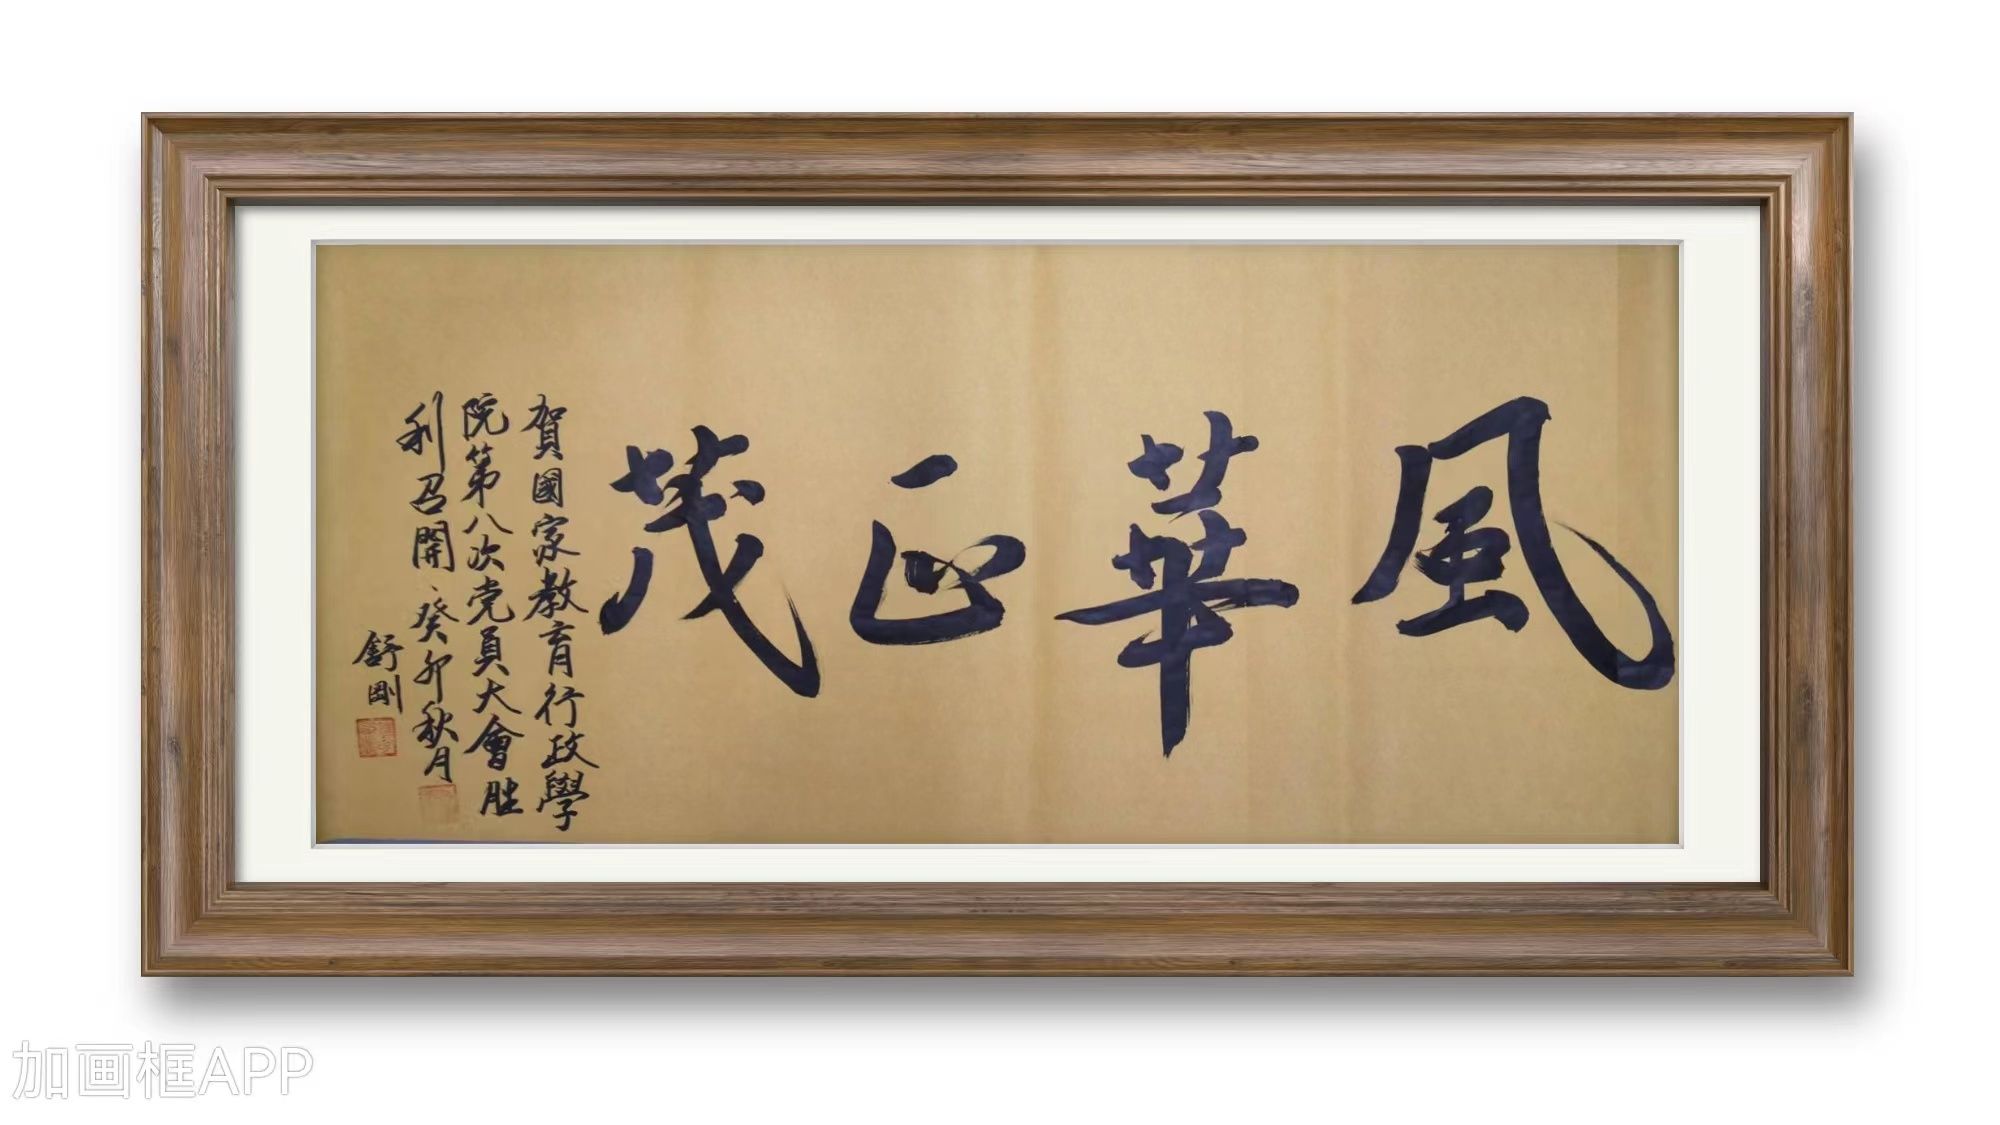 風華正茂
賀國家教育行政學
院第八次党員大會胜
利召開、癸卯秋月
舒剛
加画框APP